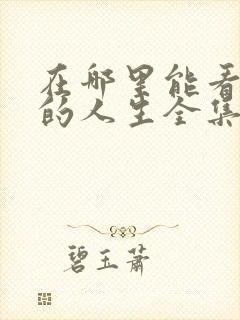 在哪里能看
的人生全集
碧玉萧